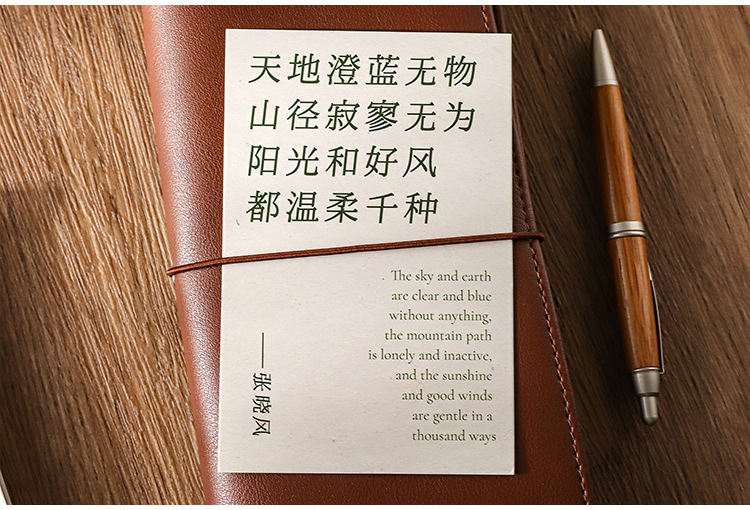 天地澄蓝无物
山径寂寥无为
阳光和好风
都温柔千种
. The sky and earth
are clear and blue
without anything,
the mountain path
is lonely and inactive,
and the sunshine
and good winds
are gentle in a
thousand ways
——张晓风